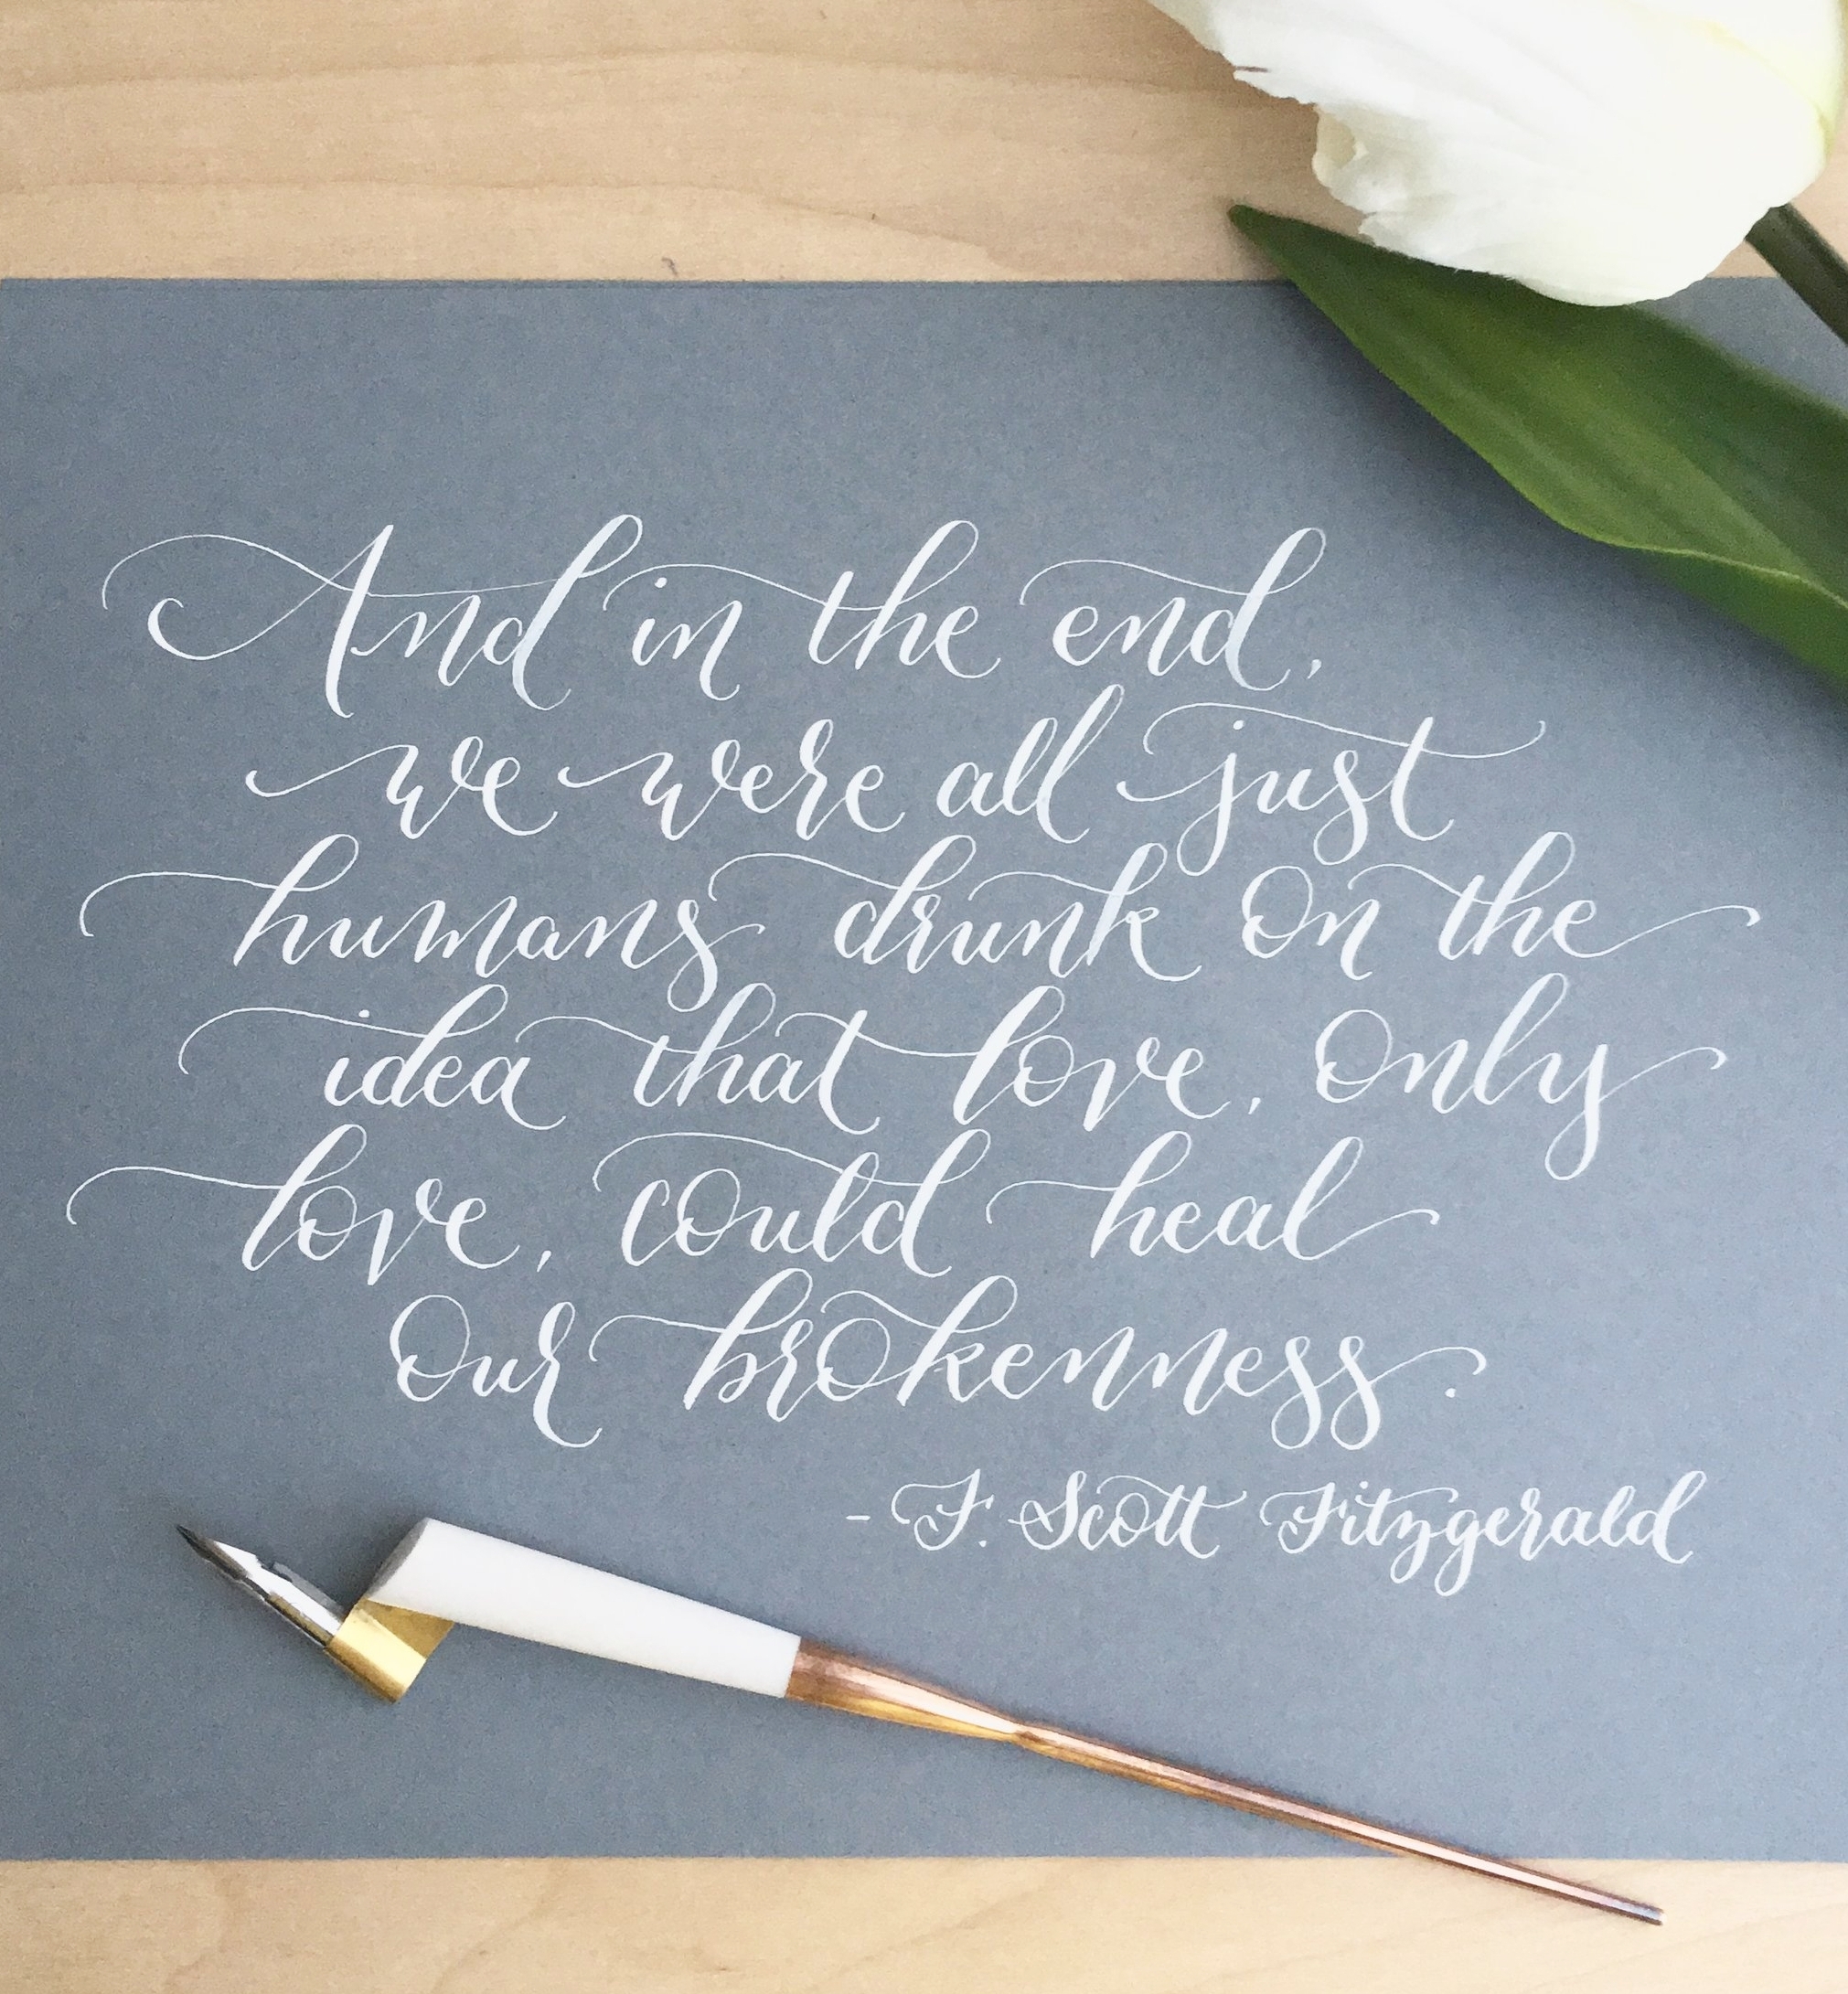 And in the end,
we were all just
humans drunk on the
idea that love, only
love, could heal
our brokenness.
- F. Scott Fitzgerald